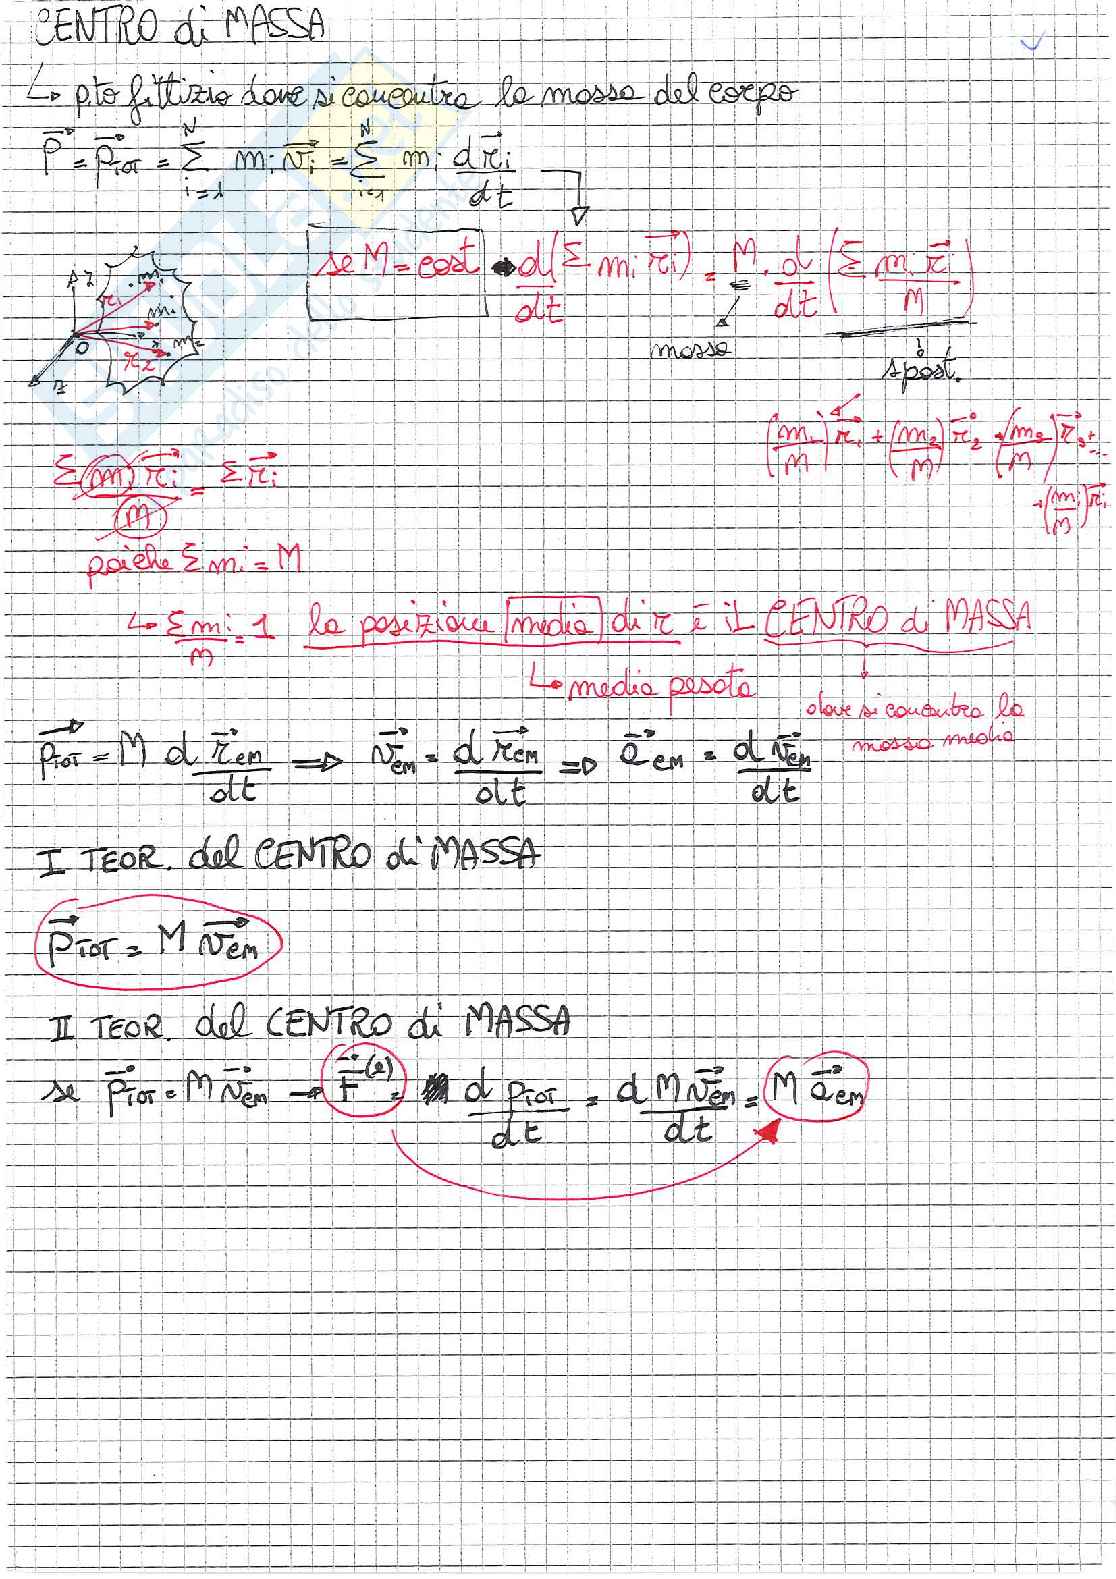 CENTRO di MASSA
↳ p.to fittizio dove si concentra la massa del corpo
P⃗ = p⃗TOT = Σ_{i=1}^{N} mi v⃗i = Σ_{i=1}^{N} mi dr⃗i/dt
se M = cost → d/dt (Σ mi r⃗i) = M · d/dt (Σ mi r⃗i / M)
massa
spost.
z r1 m1 mi O x r2 m2
(m1/M) r⃗1 + (m2/M) r⃗2 + (m3/M) r⃗3 + ...
+ (mi/M) r⃗i
Σ (m) r⃗i / M = Σ r⃗i
poiche Σ mi = M
↳ Σ mi / M = 1 la posizione media di r è il CENTRO di MASSA
↳ media pesata
dove si concentra la
massa media
p⃗TOT = M d r⃗cm/dt ⇒ v⃗cm = d r⃗cm/dt ⇒ a⃗cm = d v⃗cm/dt
I TEOR. del CENTRO di MASSA
p⃗TOT = M v⃗cm
II TEOR. del CENTRO di MASSA
se p⃗TOT = M v⃗cm → F⃗(e) = d pTOT/dt = d M v⃗cm/dt = M a⃗cm